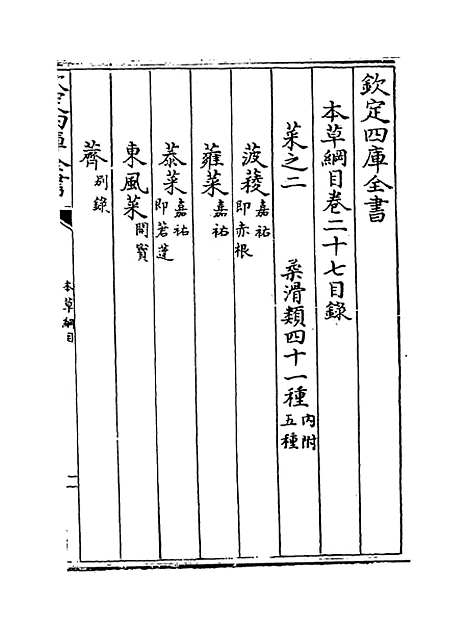 欽定四庫全書
本草綱目卷二十七目錄
菜之二 桑滑類四十一種內附五種
菠薐嘉祐即赤根
蕹菜嘉祐
菾菜嘉祐即莙薘
東風菜開寳
薺別錄
欽定四庫全書
本草綱目